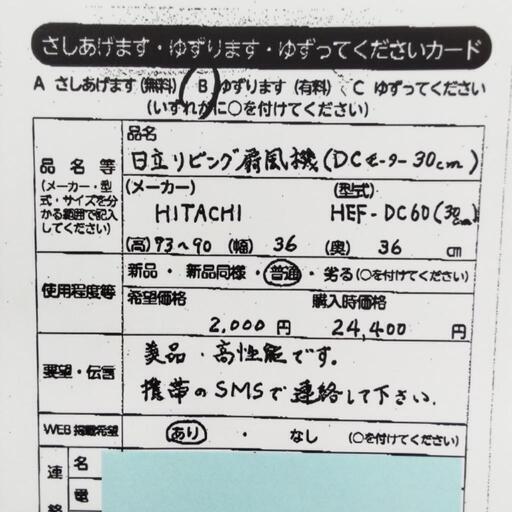 さしあげます・ゆずります・ゆずってくださいカード
A さしあげます(無料) B ゆずります(有料) C ゆずってください
(いずれかに○を付けてください)
品名
品名等
(メーカー・型式・サイズを分かる範囲で記入してください)
日立リビング扇風機(DCモーター30cm)
(メーカー) (型式)
HITACHI HEF-DC60(30cm)
(高)73~90 (幅) 36 (奥) 36 cm
使用程度等
新品・新品同様・普通・劣る(○を付けてください)
希望価格 購入時価格
2,000円 24,400円
要望・伝言
美品・高性能です。
携帯のSMSで連絡して下さい.
WEB掲載希望 あり ・ なし (○を付けてください)
連絡
名
電